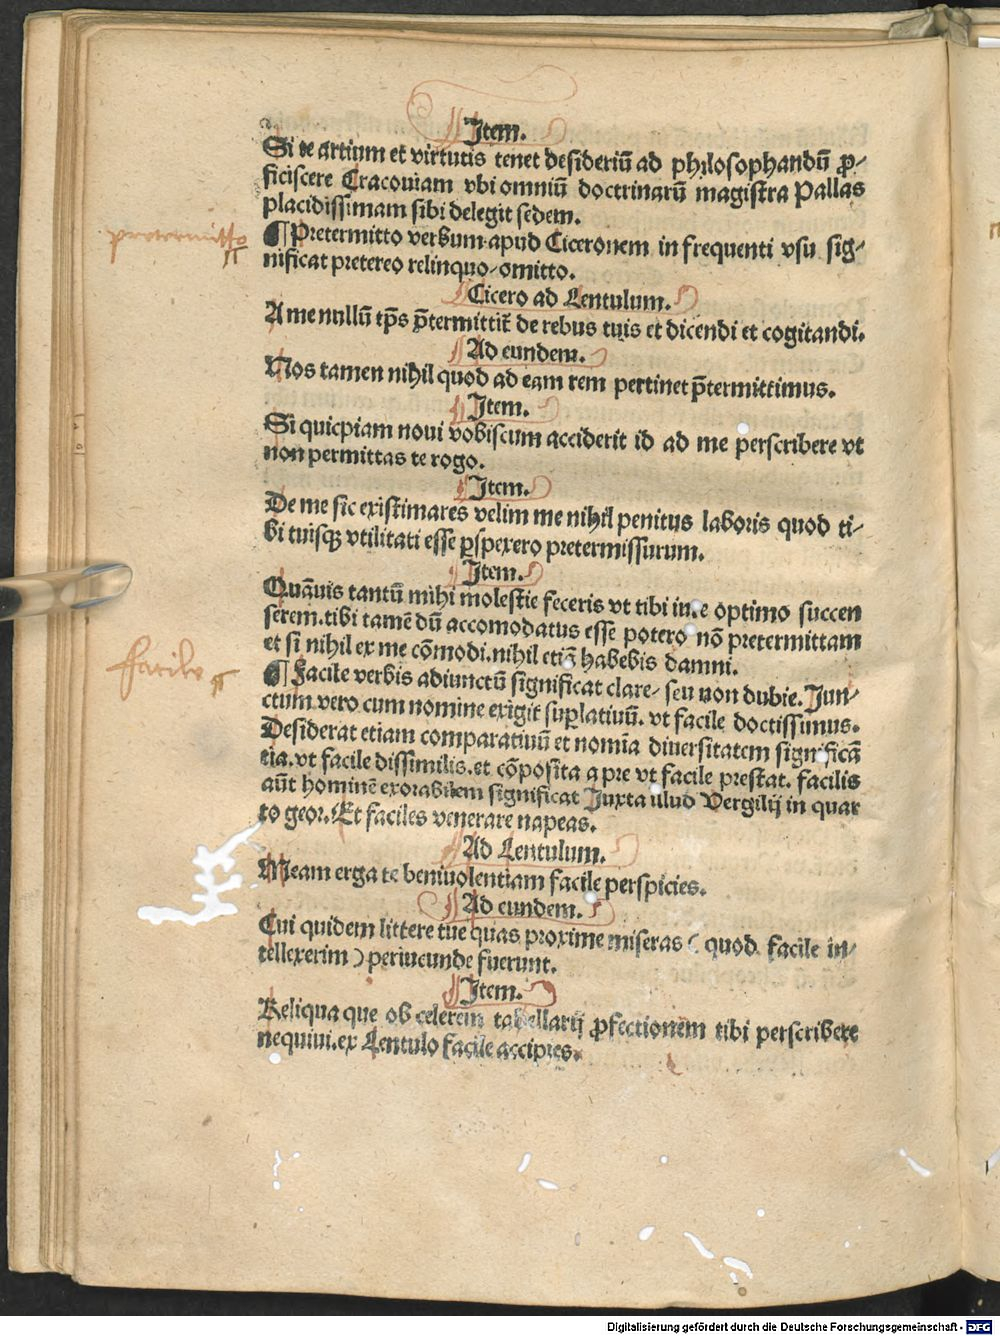 Item.
Si te artium et virtutis tenet desideriū ad philosophandū ꝓ-
ficiscere Cracouiam vbi omniū doctrinarū magistra Pallas
placidissimam sibi delegit sedem.
pretermitto
¶ Pretermitto verbum apud Ciceronem in frequenti vsu sig-
nificat pretereo relinquo omitto.
Cicero ad Lentulum.
A me nullū tp̄s p̄termittit̄ de rebus tuis et dicendi et cogitandi.
Ad eundem.
Nos tamen nihil quod ad eam rem pertinet p̄termittimus.
Item.
Si quicpiam noui vobiscum acciderit id ad me perscribere vt
non permittas te rogo.
Item.
De me sic existimares velim me nihil penitus laboris quod ti-
bi tuisqꝫ vtilitati esse ꝑspexero pretermissurum.
Item.
Quāuis tantū mihi molestie feceris vt tibi in optimo succen
serem.tibi tamē dū accomodatus esse potero nō pretermittam
et si nihil ex me cōmodi.nihil etiā habebis damni.
facile
¶ Facile verbis adiunctū significat clare seu non dubie. Iun-
ctum vero cum nomine exigit suꝑlatiuū. vt facile doctissimus.
Desiderat etiam comparatiuū et nomīa diuersitatem significā
tia.vt facile dissimilis.et cōposita a pre vt facile prestat. facilis
aūt hominē exorabilem significat Iuxta illud Vergilij in quar
to geor. Et faciles venerare napeas.
Ad Lentulum.
Meam erga te beniuolentiam facile perspicies.
Ad eundem.
Cui quidem littere tue quas proxime miseras ( quod facile in-
tellexerim ) periucunde fuerunt.
Item.
Reliqua que ob celerem tabellarij ꝓfectionem tibi perscribere
nequiui.ex Lentulo facile accipies.
Digitalisierung gefördert durch die Deutsche Forschungsgemeinschaft - DFG